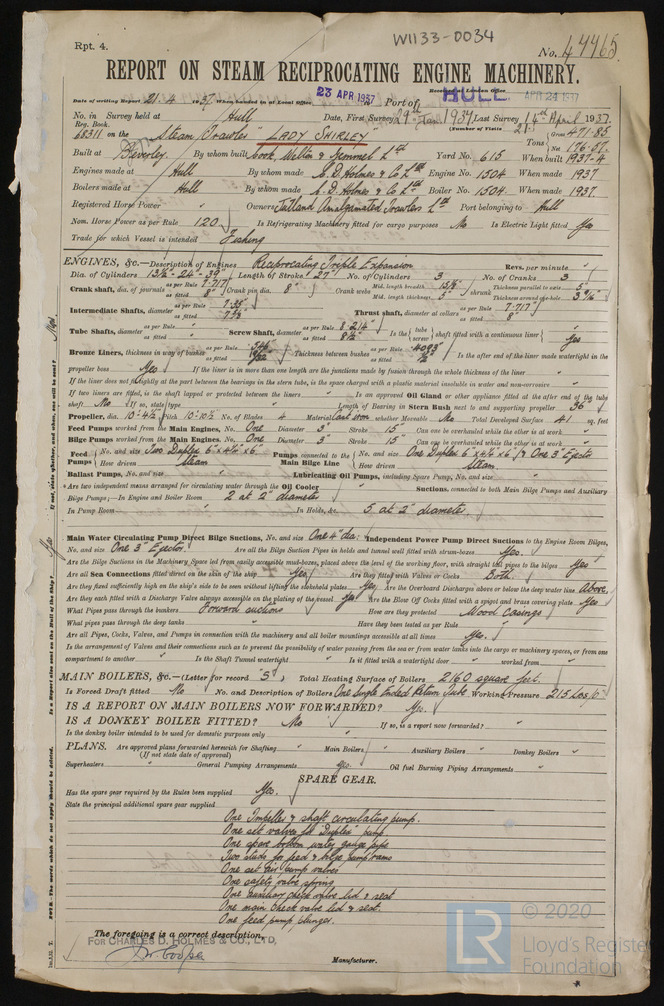 W1133-0034
Rpt. 4.
No. 47465
REPORT ON STEAM RECIPROCATING ENGINE MACHINERY.
Received at London Office
Date of writing Report 21.4.1937 When handed in at Local Office 23 APR 1937 Port of HULL APR 24 1937
No. in Survey held at Hull Date, First Survey 29th Jan 1937 Last Survey 14th April 1937
Reg. Book. (Number of Visits 21)
68311 on the Steam Trawler "LADY SHIRLEY" Tons Gross 471.85 Net 176.57
Built at Beverley. By whom built Cook, Welton & Gemmell Ltd Yard No. 615 When built 1937-4
Engines made at Hull By whom made C. D. Holmes & Co Ltd Engine No. 1504 When made 1937
Boilers made at Hull By whom made C. D. Holmes & Co Ltd Boiler No. 1504. When made 1937.
Registered Horse Power " Owners Jutland Amalgamated Trawlers Ltd Port belonging to Hull
Nom. Horse Power as per Rule 120 Is Refrigerating Machinery fitted for cargo purposes No Is Electric Light fitted Yes
Trade for which Vessel is intended Fishing
ENGINES, &c.—Description of Engines Reciprocating Triple Expansion Revs. per minute "
Dia. of Cylinders 13½"-24"-39" Length of Stroke 27" No. of Cylinders 3 No. of Cranks 3
Crank shaft, dia. of journals as per Rule 7.717 as fitted 8" Crank pin dia. 8" Crank webs Mid. length breadth 15½" Mid. length thickness 5" shrunk Thickness parallel to axis 5" Thickness around eye-hole 3 9/16"
Intermediate Shafts, diameter as per Rule 7.35 as fitted Thrust shaft, diameter at collars as per Rule 7.717 as fitted 8"
Tube Shafts, diameter as per Rule as fitted Screw Shaft, diameter as per Rule 8.214 as fitted 8½" Is the tube screw shaft fitted with a continuous liner Yes
Bronze Liners, thickness in way of bushes as per Rule as fitted Thickness between bushes as per Rule as fitted Is the after end of the liner made watertight in the
propeller boss Yes If the liner is in more than one length are the junctions made by fusion through the whole thickness of the liner "
If the liner does not fit tightly at the part between the bearings in the stern tube, is the space charged with a plastic material insoluble in water and non-corrosive "
If two liners are fitted, is the shaft lapped or protected between the liners " Is an approved Oil Gland or other appliance fitted at the after end of the tube
shaft No If so, state type Length of Bearing in Stern Bush next to and supporting propeller 36"
Propeller, dia. 10'-4½" Pitch 10'-10½" No. of Blades 4 Material Cast iron whether Moveable No Total Developed Surface 41 sq. feet
Feed Pumps worked from the Main Engines, No. One Diameter 3" Stroke 15" Can one be overhauled while the other is at work "
Bilge Pumps worked from the Main Engines, No. One Diameter 3" Stroke 15" Can one be overhauled while the other is at work "
Feed Pumps No. and size Two Duplex 6"x4½"x6" How driven Steam Pumps connected to the Main Bilge Line No. and size One Duplex 6"x4½"x6" & One 3" Ejector How driven Steam
Ballast Pumps, No. and size " Lubricating Oil Pumps, including Spare Pump, No. and size "
Are two independent means arranged for circulating water through the Oil Cooler " Suctions, connected to both Main Bilge Pumps and Auxiliary
Bilge Pumps;—In Engine and Boiler Room 2 at 2" diameter
In Pump Room " In Holds, &c. 5 at 2" diameter
Main Water Circulating Pump Direct Bilge Suctions, No. and size One 4" dia: Independent Power Pump Direct Suctions to the Engine Room Bilges,
No. and size One 3" Ejector. Are all the Bilge Suction Pipes in holds and tunnel well fitted with strum-boxes Yes.
Are the Bilge Suctions in the Machinery Space led from easily accessible mud-boxes, placed above the level of the working floor, with straight tail pipes to the bilges Yes
Are all Sea Connections fitted direct on the skin of the ship Yes Are they fitted with Valves or Cocks Both.
Are they fixed sufficiently high on the ship's side to be seen without lifting the stokehold plates Yes Are the Overboard Discharges above or below the deep water line Above
Are they each fitted with a Discharge Valve always accessible on the plating of the vessel Yes Are the Blow Off Cocks fitted with a spigot and brass covering plate Yes
What Pipes pass through the bunkers Forward suctions How are they protected Wood Casings
What pipes pass through the deep tanks " Have they been tested as per Rule "
Are all Pipes, Cocks, Valves, and Pumps in connection with the machinery and all boiler mountings accessible at all times Yes.
Is the arrangement of Valves and their connections such as to prevent the possibility of water passing from the sea or from water tanks into the cargo or machinery spaces, or from one
compartment to another Is the Shaft Tunnel watertight " Is it fitted with a watertight door " worked from "
MAIN BOILERS, &c.—(Letter for record "S") Total Heating Surface of Boilers 2160 square feet.
Is Forced Draft fitted No No. and Description of Boilers One Single Ended Return Tube Working Pressure 215 Lbs/□"
IS A REPORT ON MAIN BOILERS NOW FORWARDED? Yes.
IS A DONKEY BOILER FITTED? No If so, is a report now forwarded? "
Is the donkey boiler intended to be used for domestic purposes only
PLANS. Are approved plans forwarded herewith for Shafting " Main Boilers " Auxiliary Boilers " Donkey Boilers "
(If not state date of approval)
Superheaters " General Pumping Arrangements Yes. Oil fuel Burning Piping Arrangements "
SPARE GEAR.
Has the spare gear required by the Rules been supplied Yes.
State the principal additional spare gear supplied
One Impeller & shaft circulating pump.
One set valves for "Duplex" pump
One spare bottom water gauge pipe
Two studs for feed & bilge pump rams
One set air pump valves
One safety valve spring
One auxiliary check valve lid & seat
One main check valve lid & seat.
One feed pump plunger.
The foregoing is a correct description,
FOR CHARLES D. HOLMES & CO., LTD,
Manufacturer.
Is a Report also sent on the Hull of the Ship? Yes
If not, state whether, and when, one will be sent?
NOTE.—The words which do not apply should be deleted.
© 2020
LR
Lloyd's Register
Foundation